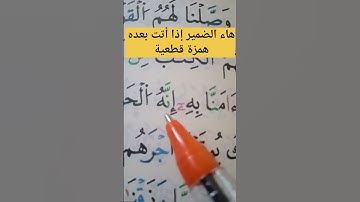 وَصَّلۡنَا لَهُمُ
هاء الضمير إذا أتت بعده
همزة قطعية
ٱلۡكِتَٰبَ
ءَامَنَّا بِهِۦٓ إِنَّهُ
أَجۡرَهُم